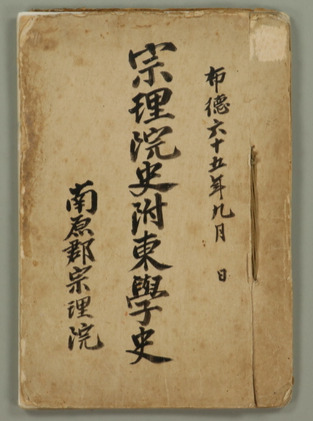 布德六十五年九月 日
宗理院史附東學史
南原郡宗理院